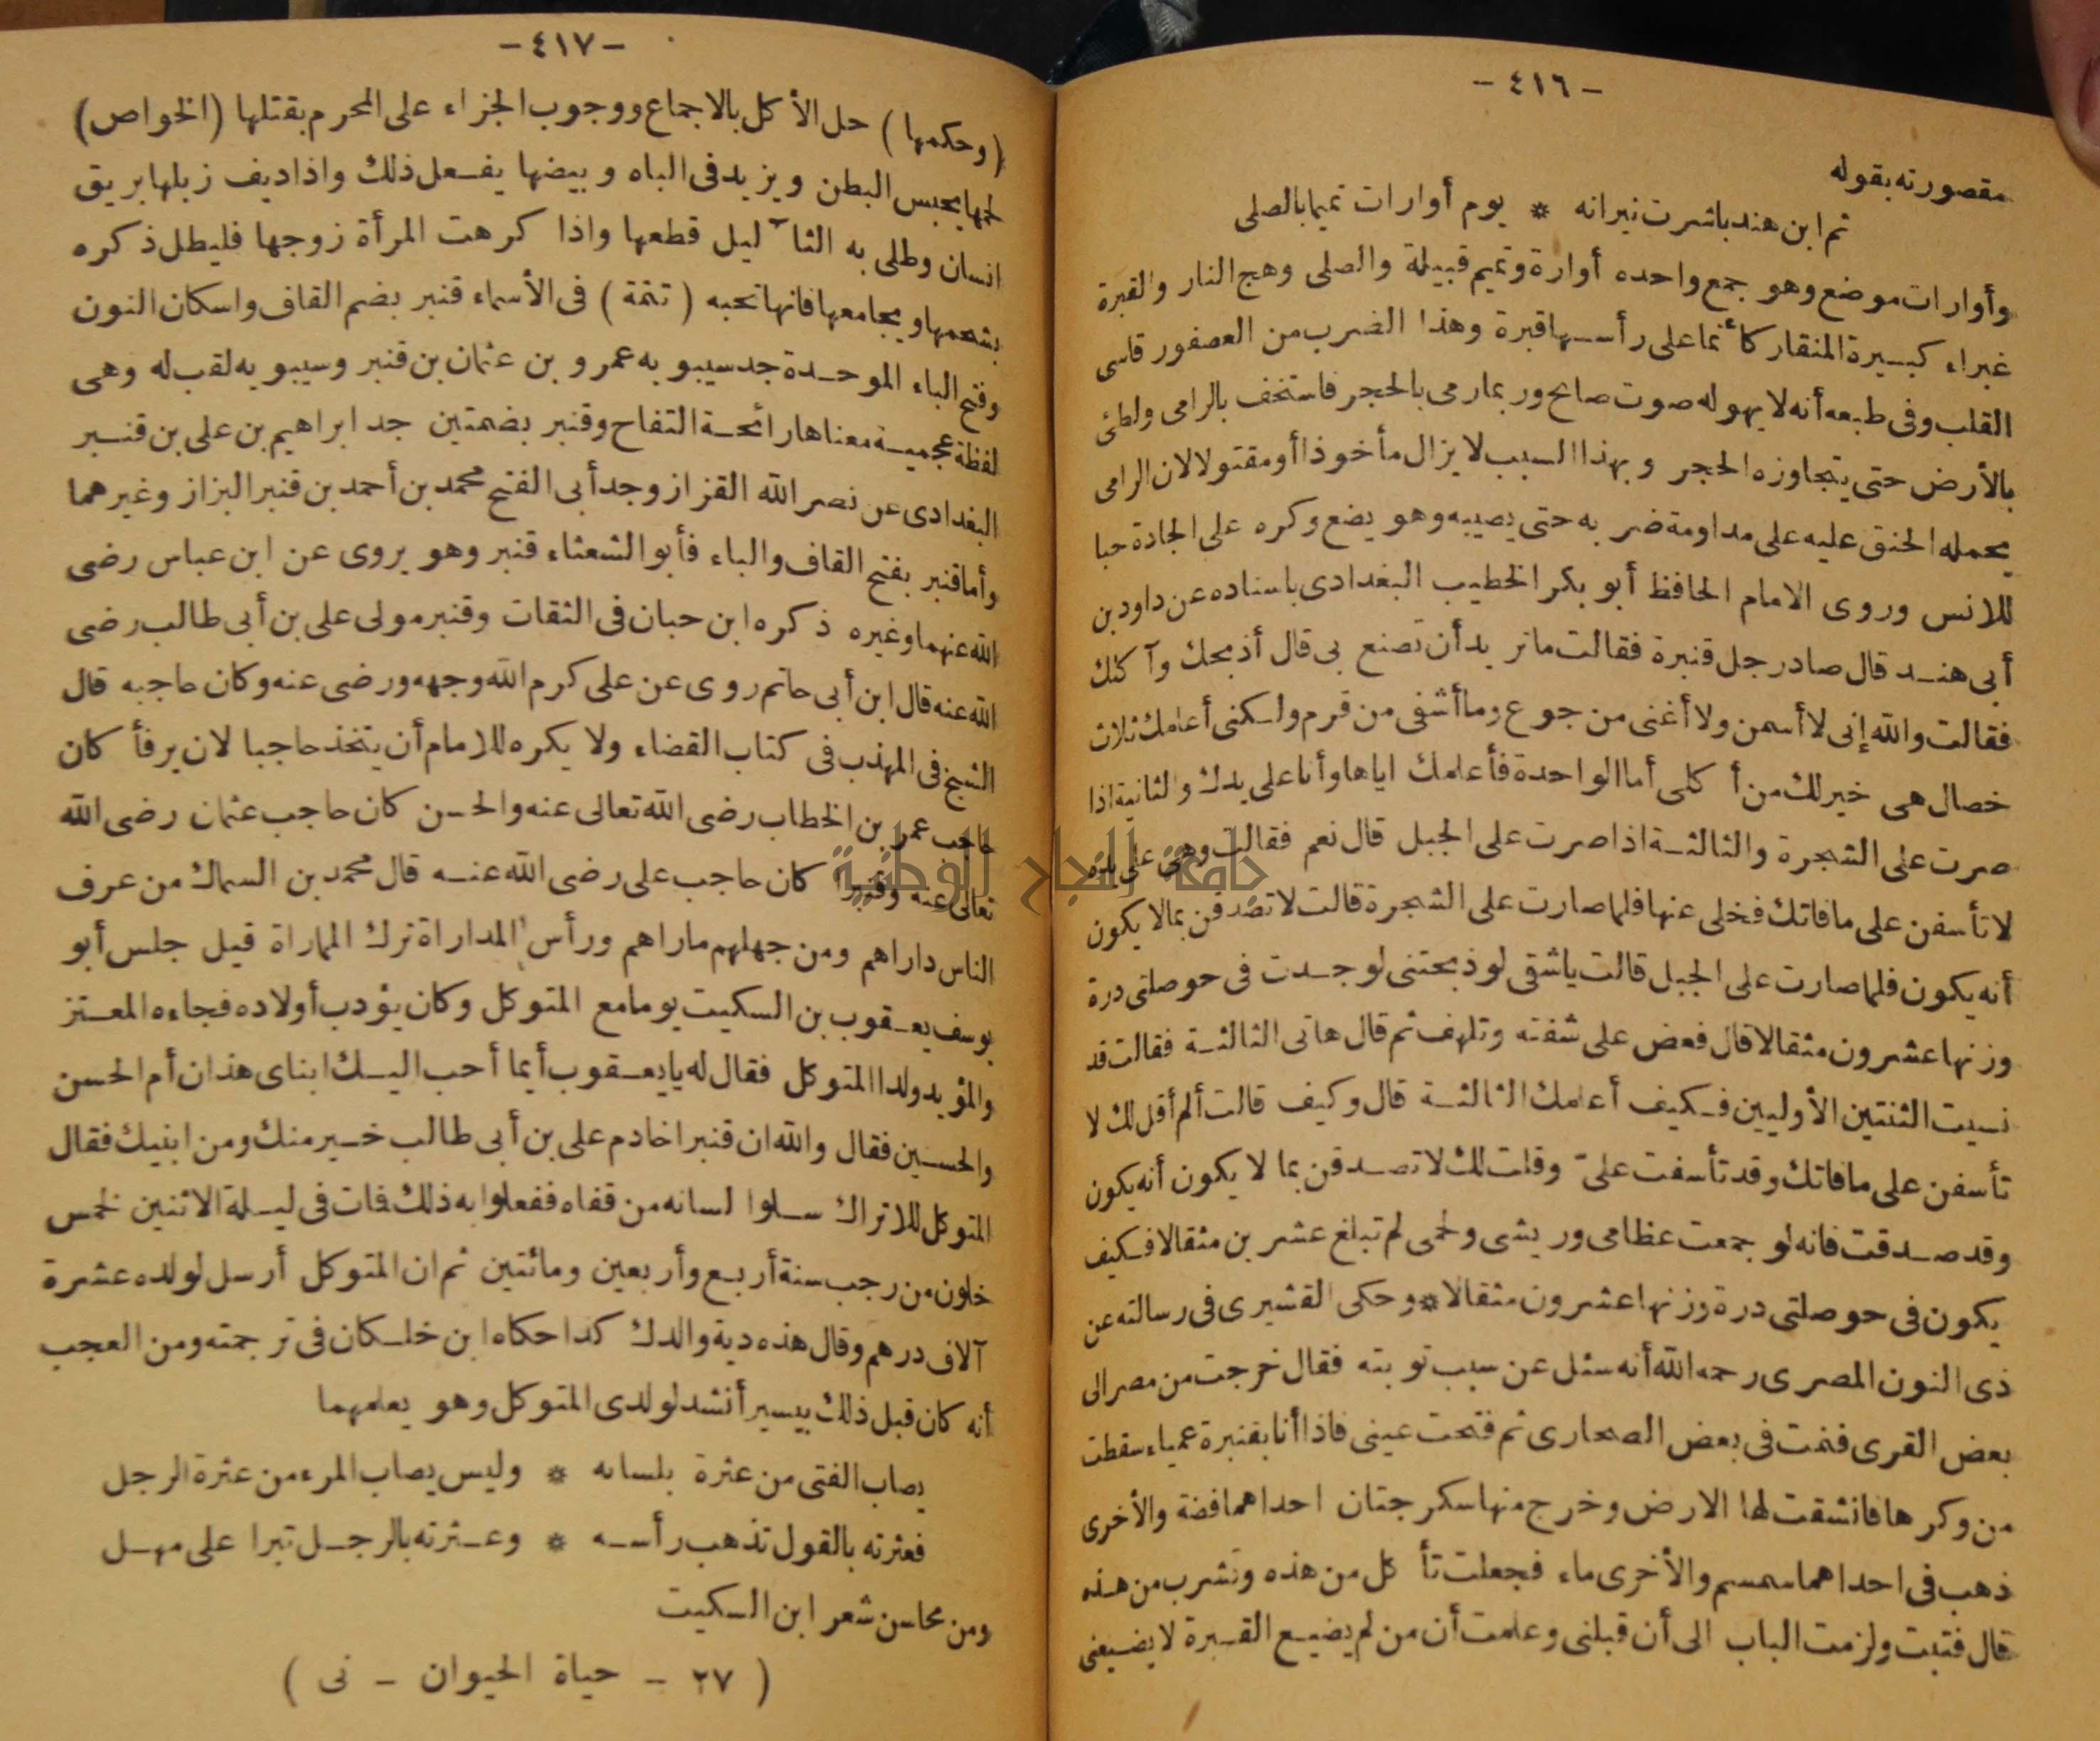 - ٤١٦ -
مقصورته بقوله
ثم ابن هند باشرت نيرانه * يوم أوارات تميما بالصلى
وأوارات موضع وهو جمع واحده أوارة وتميم قبيلة والصلى وهج النار والقبرة
غبراء كبيرة المنقار كأنما على رأسها قبرة وهذا الضرب من العصفور قاسى
القلب وفى طبعه أنه لا يهوله صوت صائح وربما رمى بالحجر فاستخف بالرامى ولطئ
بالأرض حتى يتجاوزه الحجر وبهذا السبب لا يزال مأخوذا أو مقتولا لان الرامى
يحمله الحنق عليه على مداومة ضربه حتى يصيبه وهو يضع وكره على الجادة حبا
للانس وروى الامام الحافظ أبو بكر الخطيب البغدادى باسناده عن داود بن
أبى هند قال صاد رجل قنبرة فقالت ما تريد أن تصنع بى قال أذبحك وآكلك
فقالت والله إنى لا أسمن ولا أغنى من جوع وما أشفى من قرم ولكنى أعلمك ثلاث
خصال هى خير لك من أكلى أما الواحدة فأعلمك اياها وأنا على يدك والثانية اذا
صرت على الشجرة والثالثة اذا صرت على الجبل قال نعم فقالت وهى على يده
لا تأسفن على ما فاتك فخلى عنها فلما صارت على الشجرة قالت لا تصدقن بما لا يكون
أنه يكون فلما صارت على الجبل قالت يا شقى لو ذبحتنى لوجدت فى حوصلتى درة
وزنها عشرون مثقالا قال فعض على شفته وتلهف ثم قال هاتى الثالثة فقالت قد
نسيت الثنتين الأوليين فكيف أعلمك الثالثة قال وكيف قالت ألم أقل لك لا
تأسفن على ما فاتك وقد تأسفت علىّ وقلت لك لا تصدقن بما لا يكون أنه يكون
وقد صدقت فانه لو جمعت عظامى وريشى ولحمى لم تبلغ عشرين مثقالا فكيف
يكون فى حوصلتى درة وزنها عشرون مثقالا * وحكى القشيرى فى رسالته عن
ذى النون المصرى رحمه الله أنه سئل عن سبب توبته فقال خرجت من مصر الى
بعض القرى فنمت فى بعض الصحارى ثم فتحت عينى فاذا أنا بقنبرة عمياء سقطت
من وكرها فانشقت لها الارض وخرج منها سكرجتان احداهما فضة والأخرى
ذهب فى احداهما سمسم والأخرى ماء فجعلت تأكل من هذه وتشرب من هذه
قال فتبت ولزمت الباب الى أن قبلنى وعلمت أن من لم يضيع القبرة لا يضيعنى
- ٤١٧ -
(وحكمها) حل الأكل بالاجماع ووجوب الجزاء على المحرم بقتلها (الخواص)
لحمها يحبس البطن ويزيد فى الباه وبيضها يفعل ذلك واذا ديف زبلها بريق
انسان وطلى به الثآليل قطعها واذا كرهت المرأة زوجها فليطل ذكره
بشحمها ويجامعها فانها تحبه (تتمة) فى الأسماء قنبر بضم القاف واسكان النون
وفتح الباء الموحدة جد سيبويه عمرو بن عثمان بن قنبر وسيبويه لقب له وهى
لفظة عجمية معناها رائحة التفاح وقنبر بضمتين جد ابراهيم بن على بن قنبر
البغدادى عن نصر الله القزاز وجد أبى الفتح محمد بن أحمد بن قنبر البزاز وغيرهما
وأما قنبر بفتح القاف والباء فأبو الشعثاء قنبر وهو يروى عن ابن عباس رضى
الله عنهما وغيره ذكره ابن حبان فى الثقات وقنبر مولى على بن أبى طالب رضى
الله عنه قال ابن أبى حاتم روى عن على كرم الله وجهه ورضى عنه وكان حاجبه قال
الشيخ فى المهذب فى كتاب القضاء ولا يكره للامام أن يتخذ حاجبا لان يرفأ كان
حاجب عمر بن الخطاب رضى الله تعالى عنه والحسن كان حاجب عثمان رضى الله
تعالى عنه وقنبرا كان حاجب على رضى الله عنه قال محمد بن السماك من عرف
الناس داراهم ومن جهلهم ماراهم ورأس المداراة ترك المماراة قيل جلس أبو
يوسف يعقوب بن السكيت يوما مع المتوكل وكان يؤدب أولاده فجاءه المعتز
والمؤيد ولدا المتوكل فقال له يا يعقوب أيما أحب اليك ابناى هذان أم الحسن
والحسين فقال والله ان قنبرا خادم على بن أبى طالب خير منك ومن ابنيك فقال
المتوكل للاتراك سلوا لسانه من قفاه ففعلوا به ذلك فمات فى ليلة الاثنين لخمس
خلون من رجب سنة أربع وأربعين ومائتين ثم ان المتوكل أرسل لولده عشرة
آلاف درهم وقال هذه دية والدك كذا حكاه ابن خلكان فى ترجمته ومن العجب
أنه كان قبل ذلك بيسير أنشد لولدى المتوكل وهو يعلمهما
يصاب الفتى من عثرة بلسانه * وليس يصاب المرء من عثرة الرجل
فعثرته بالقول تذهب رأسه * وعثرته بالرجل تبرا على مهل
ومن محاسن شعر ابن السكيت
( ٢٧ - حياة الحيوان - نى )
جامعة النجاح الوطنية